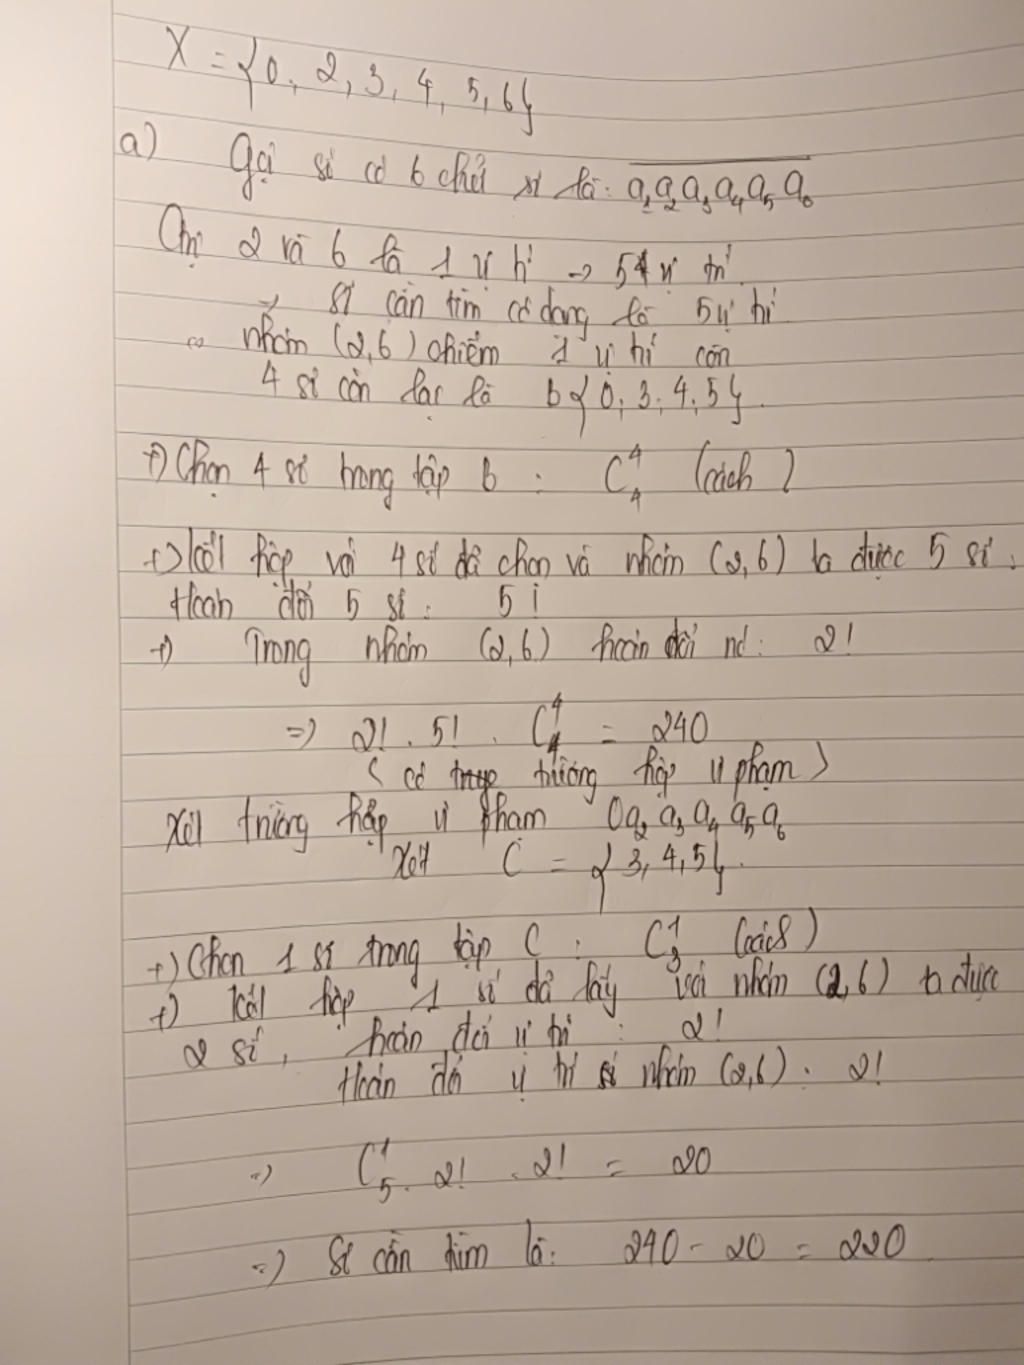 X = {0, 2, 3, 4, 5, 6}
a) Gọi số có 6 chữ số là: a₁a₂a₃a₄a₅a₆
Chọn 2 và 6 là 1 vị trí → 5 vị trí
→ số cần tìm có dạng là 5 vị trí
nhóm (2,6) chiếm 1 vị trí còn
4 số còn lại là b{0, 3, 4, 5}.
+) Chọn 4 số trong tập b : C₄⁴ (cách)
+) Kết hợp với 4 số đã chọn và nhóm (2,6) ta được 5 số.
Hoán đổi 5 số: 5!
+) Trong nhóm (2,6) hoán đổi nd: 2!
=> 2! . 5! . C₄⁴ = 240
(có trường hợp vi phạm)
Xét trường hợp vi phạm 0a₂a₃a₄a₅a₆
Xét C = {3, 4, 5}.
+) Chọn 1 số trong tập C : C₃¹ (cách)
+) Kết hợp 1 số đã lấy với nhóm (2,6) ta được
2 số, hoán đổi vị trí : 2!
Hoán đổi vị trí số nhóm (2,6). 2!
=> C₅¹. 2! . 2! = 20
=> Số cần tìm là: 240 - 20 = 220